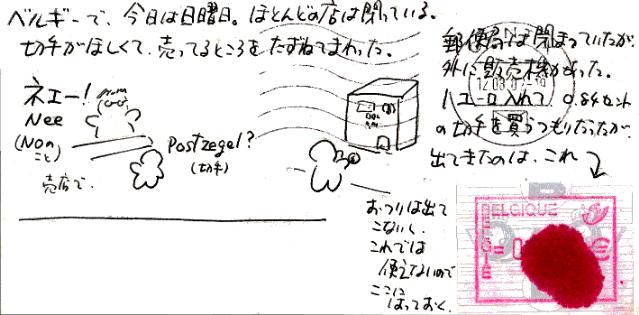 ベルギーで、今日は日曜日。ほとんどの店は閉っている。
切手がほしくて、売ってるところをたずねてまわった。
ネェー!
Nee
(NOの
こと)
売店で。
Postzegel?
(切手)
郵便局は閉まっていたが、
外に販売機があった。
1ユーロ入れて、0.84セント
の切手を買うつもりだったが、
出てきたのは、これ
おつりは出て
こないし、
これでは
使えないので
ここに
はっておく。
BELGIQUE
BELGIE
€